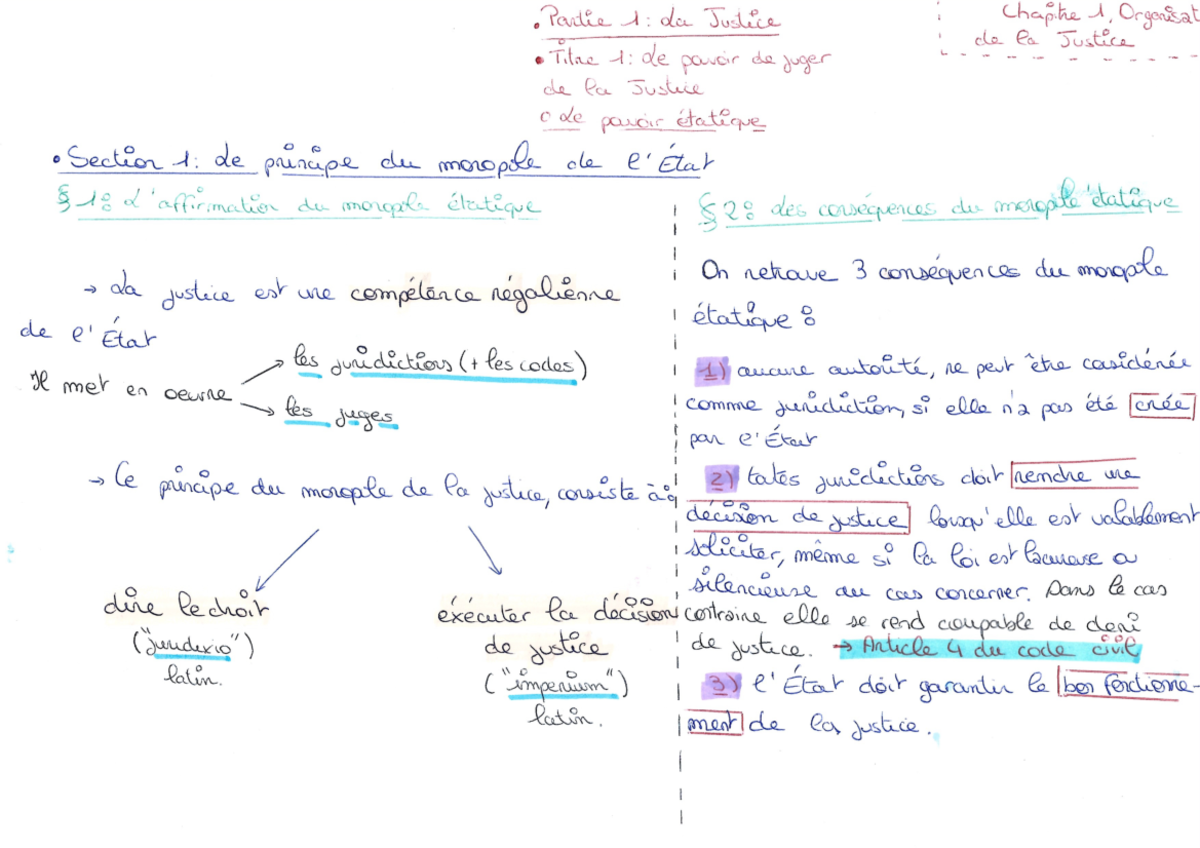 • Partie 1 : La Justice
• Titre 1 : Le pouvoir de juger
de la Justice
○ Le pouvoir étatique
Chapitre 1, Organisat
de la Justice
• Section 1 : Le principe du monopole de l'État
§ 1 : L'affirmation du monopole étatique
→ La justice est une compétence régalienne
de l'État
Il met en oeuvre
→ les juridictions (+ les codes)
→ les juges
→ Ce principe du monopole de la justice, consiste à
dire le droit
("juridixio")
latin.
éxécuter la décision
de justice
("imperium")
latin.
§ 2 : des conséquences du monopole étatique
On retrouve 3 conséquences du monopole
étatique :
1) aucune autorité, ne peut être considérée
comme juridiction, si elle n'a pas été créée
par l'État
2) toutes juridictions doit rendre une
décision de justice lorsqu'elle est valablement
soliciter, même si la loi est
silencieuse au cas concerner. Dans le cas
contraire elle se rend coupable de deni
de justice. → Article 4 du code civil
3) l'État doit garantir le bon fonctionne-
ment de la justice.